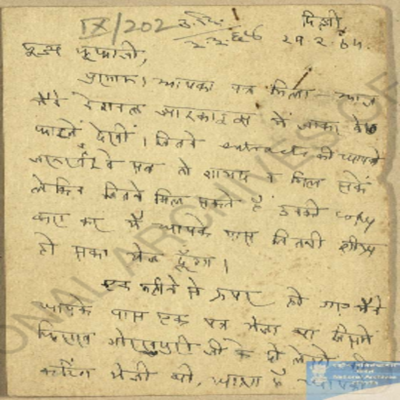 IX/202 दिल्ली
पूज्य फूफाजी,
प्रणाम। आपका पत्र मिला — आज
मैंने नेशनल आरकाइव्स में जाकर
फाइलें देखीं। जितने extracts की आपको
वे सब तो शायद न मिल सकें
लेकिन जितने मिल सकते हैं उनकी copy
करा कर मैं आपके पास जितनी शीघ्र
हो सका भेज दूँगा।
एक महीने से ऊपर हो गए मैंने
आपके पास एक पत्र भेजा था जिसमें
गोरखपुरी जी के दो लेखों की
कटिंग भेजी थी, आशा है
ONAL ARCHIVES OF